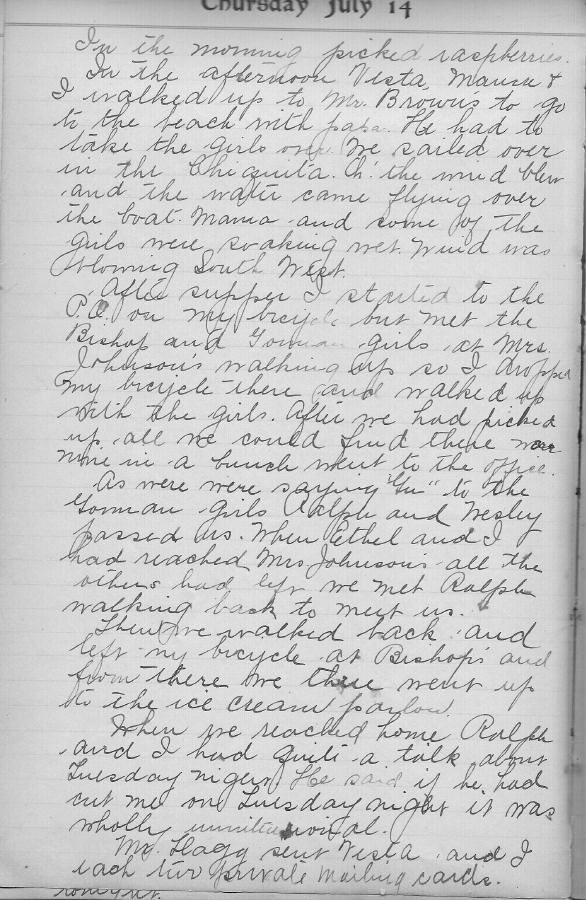 Thursday July 14
In the morning picked raspberries.
In the afternoon Vesta, Mama &
I walked up to Mr. Browns to go
to the beach with papa. He had to
take the girls over. We sailed over
in the Chiquita. Oh! the wind blew
and the water came flying over
the boat. Mama and some of the
girls were soaking wet. Wind was
blowing South West.
After supper I started to the
P.O. on my bicycle but met the
Bishop and Gorman girls at Mrs.
Johnson's walking up so I dropped
my bicycle there and walked up
with the girls. After we had picked
up all we could find there were
nine in a bunch went to the office.
As were were saying "Gn" to the
Gorman girls Ralph and Wesley
passed us. When Ethel and I
had reached Mrs Johnson's all the
others had left we met Ralph
walking back to meet us.
Then we walked back and
left my bicycle at Bishop's and
from there we three went up
to the ice cream parlor.
When we reached home Ralph
and I had quite a talk about
Tuesday night. He said if he had
cut me on Tuesday night it was
wholly
Mr. Flagg sent Vesta and I
each two private mailing cards.
tonight.